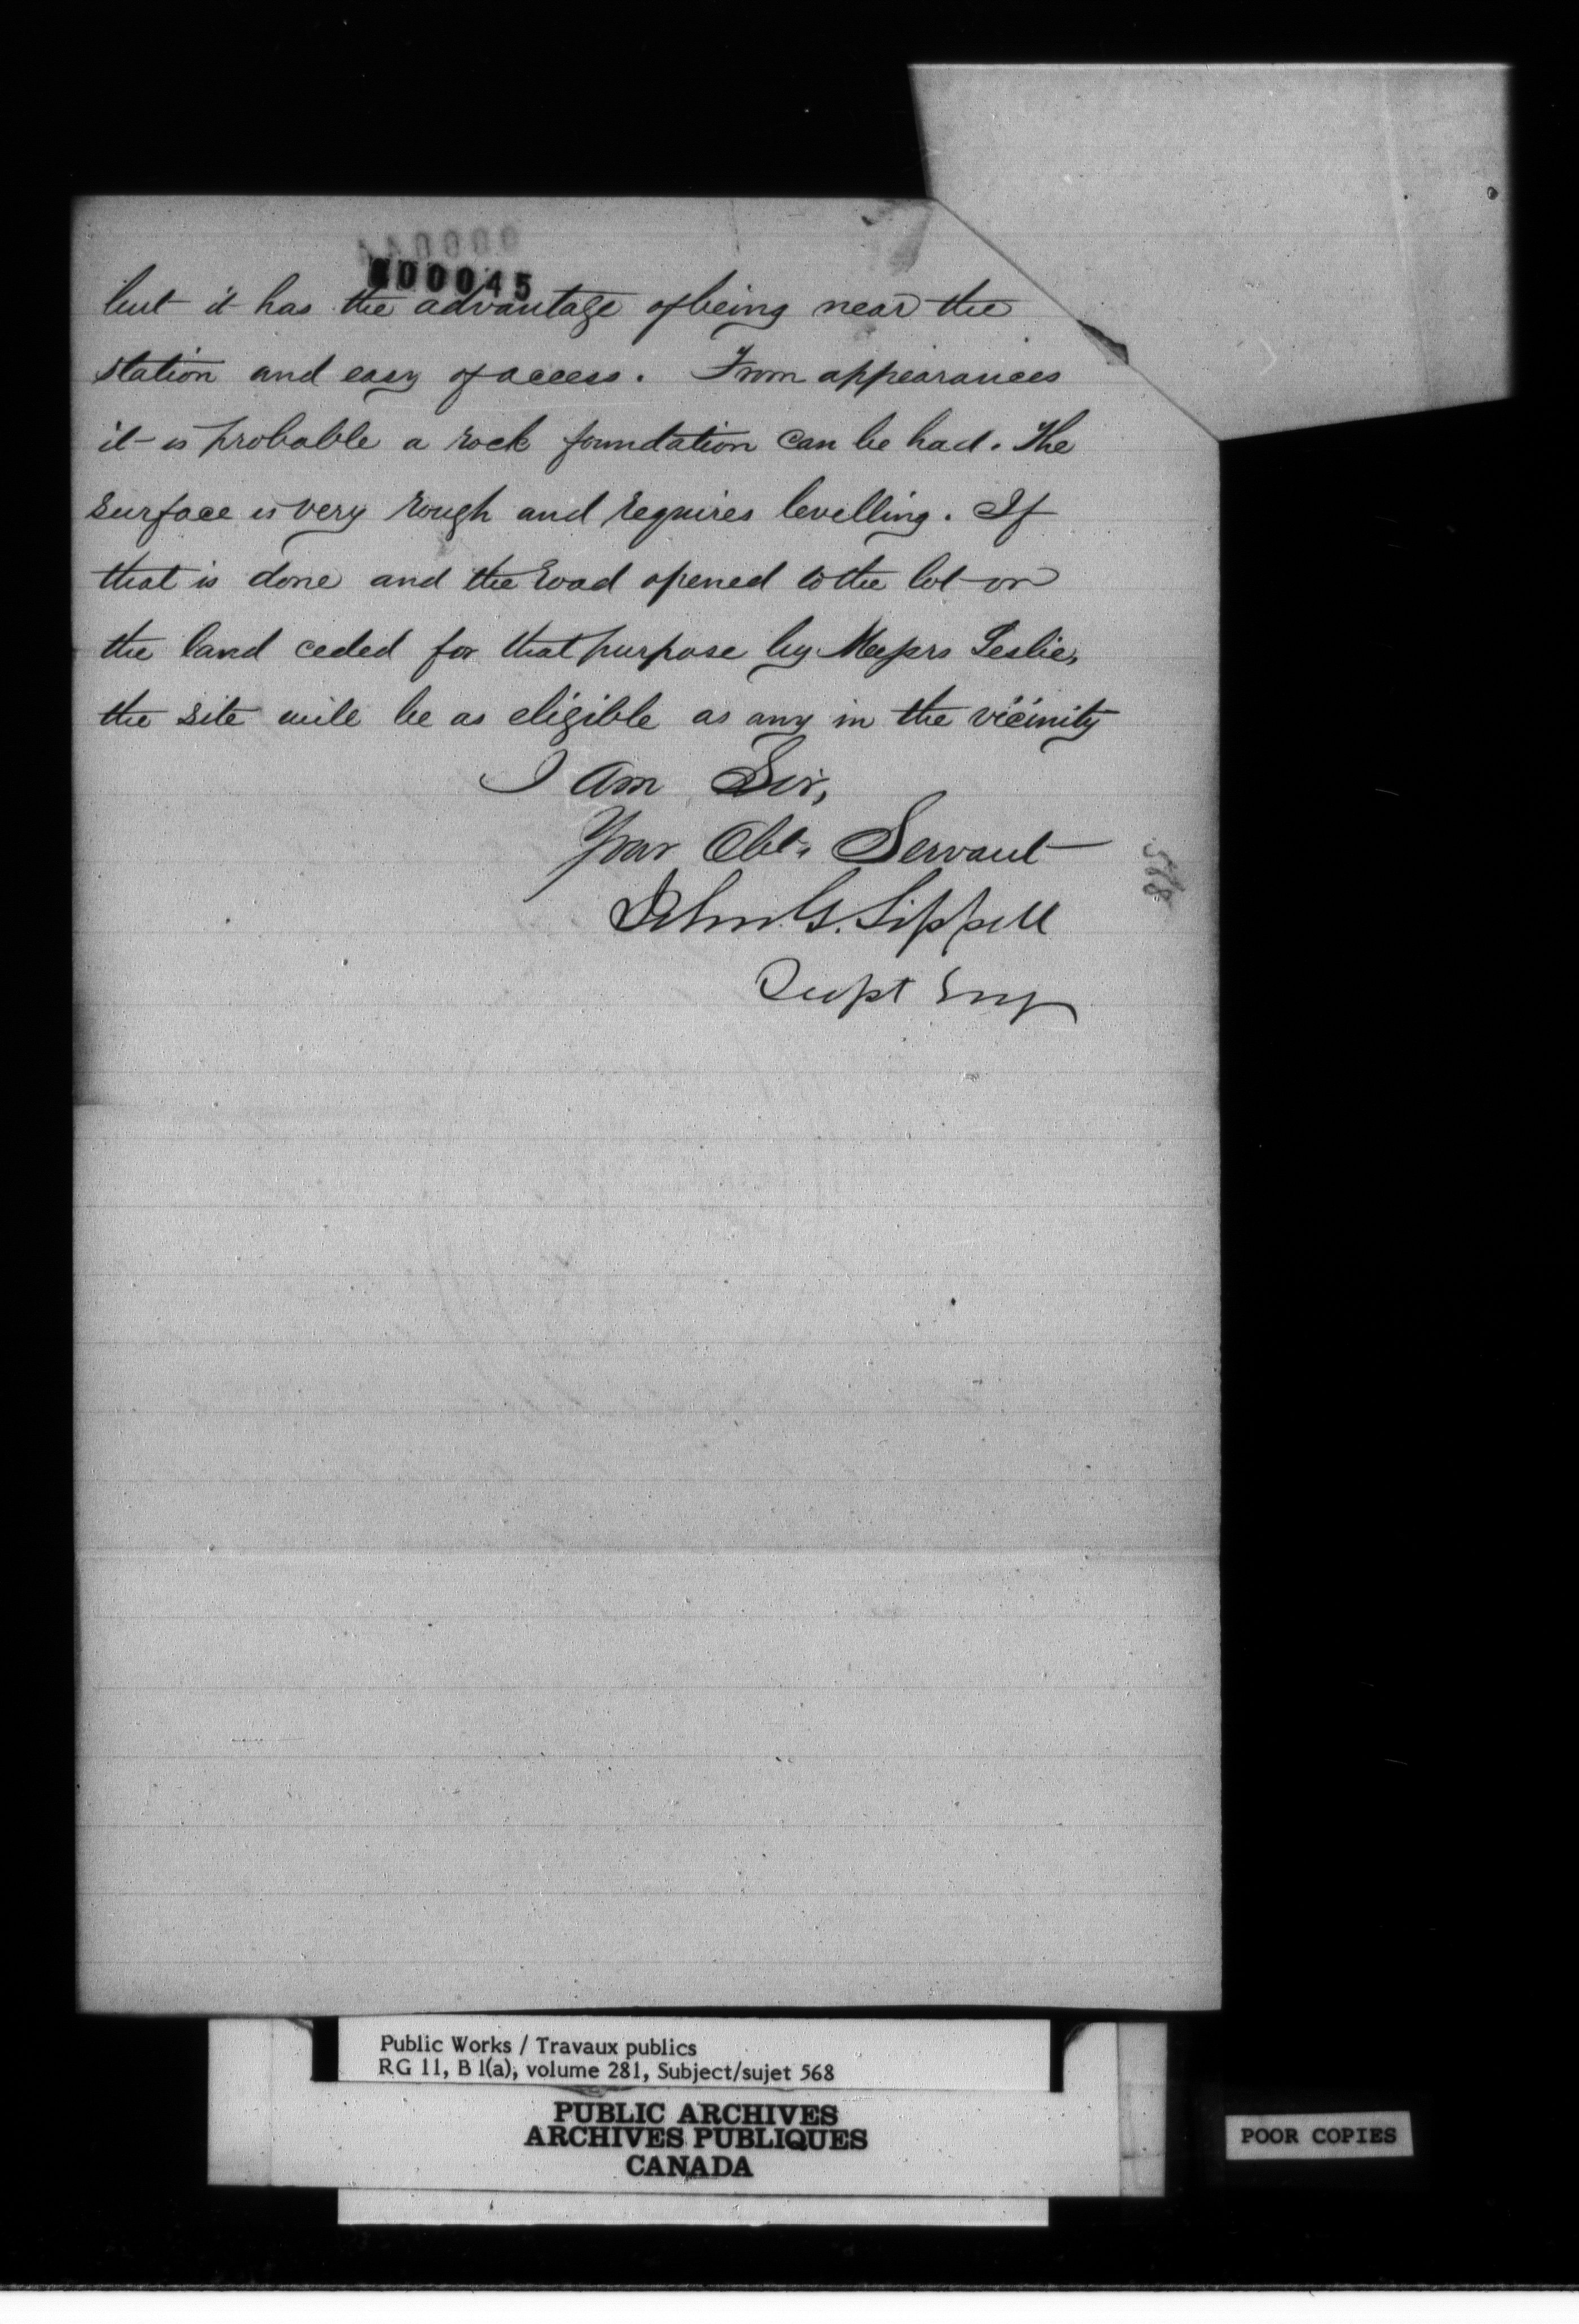 000045
but it has the advantage of being near the
station and easy of access. From appearances
it is probable a rock foundation can be had. The
surface is very rough and requires levelling. If
that is done and the road opened to the lot on
the land ceded for that purpose by Messrs Leslie,
the site will be as eligible as any in the vicinity
I am Sir,
Your Obt. Servant
John G. Sippell
Supt Eng
568
Public Works / Travaux publics
RG 11, B 1(a), volume 281, Subject/sujet 568
PUBLIC ARCHIVES
ARCHIVES PUBLIQUES
CANADA
POOR COPIES